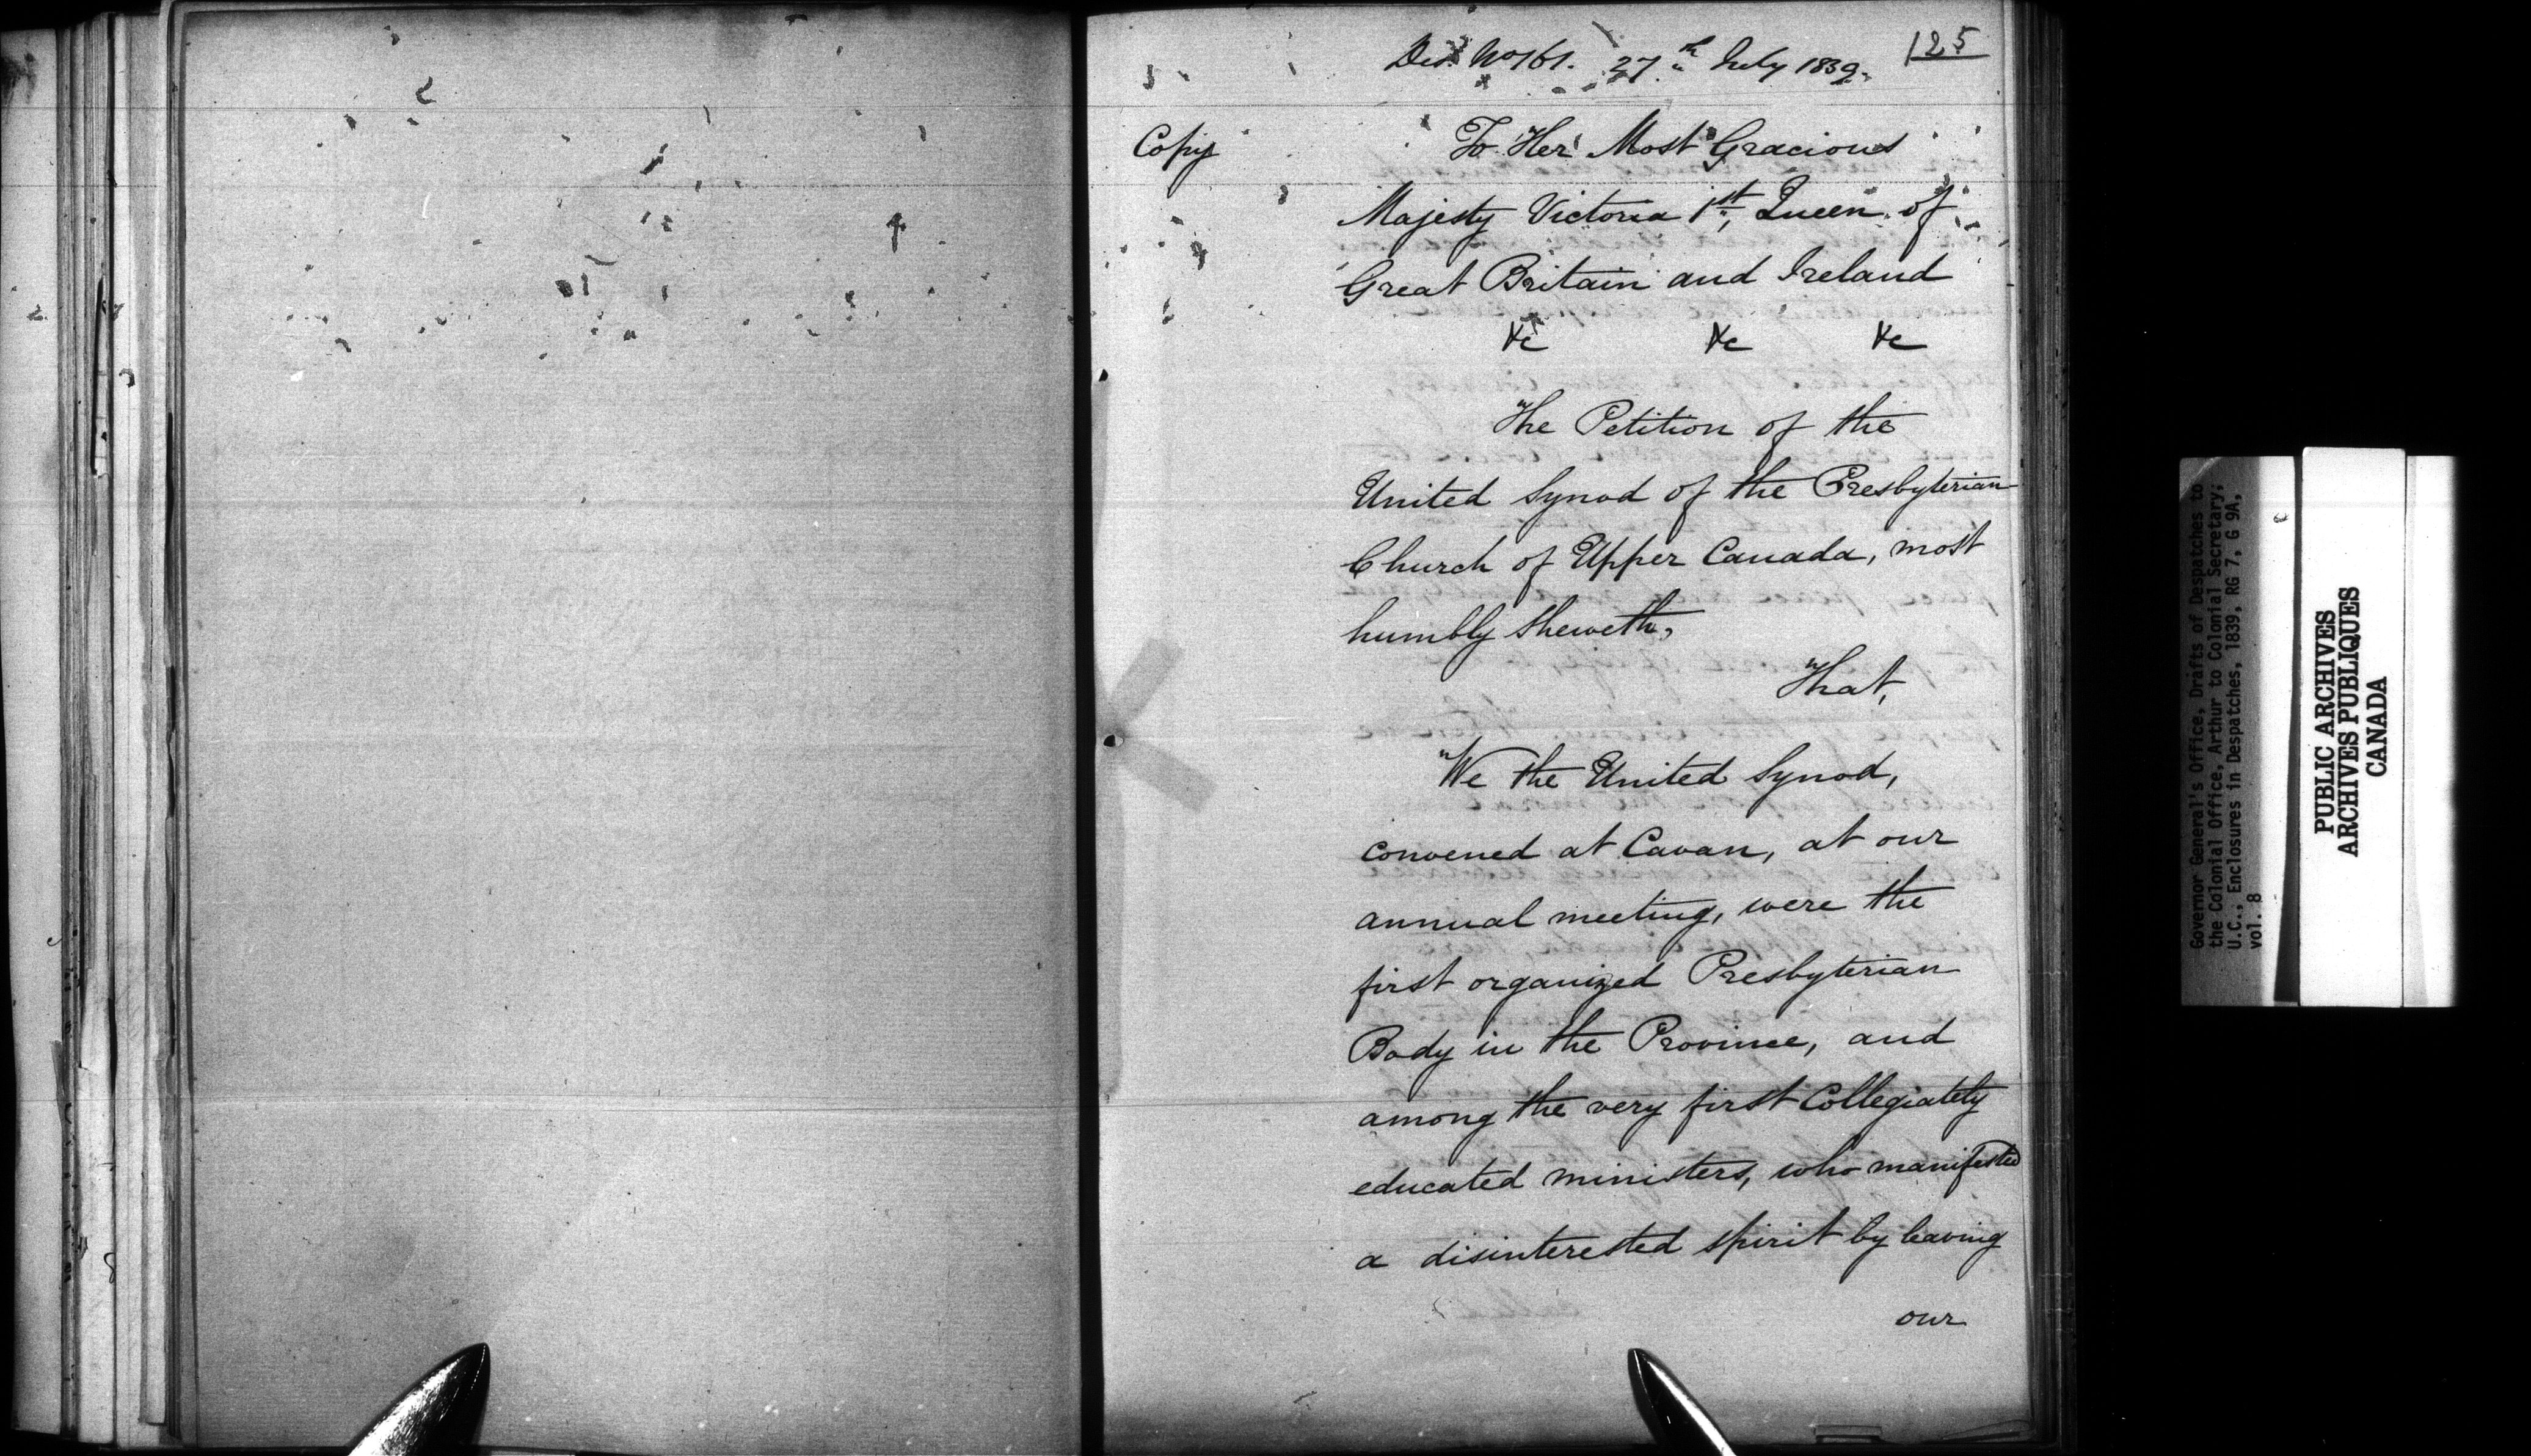 125
Des. No 161. 27th July 1839.
Copy
To Her Most Gracious
Majesty Victoria 1st, Queen of
Great Britain and Ireland
&c &c &c
The Petition of the
United Synod of the Presbyterian
Church of Upper Canada, most
humbly sheweth,
That,
We the United Synod,
convened at Cavan, at our
annual meeting, were the
first organized Presbyterian
Body in the Province, and
among the very first Collegiately
educated ministers, who manifested
a disinterested spirit by leaving
our
Governor General's Office, Drafts of Despatches to
the Colonial Office, Arthur to Colonial Secretary;
U.C., Enclosures in Despatches, 1839, RG 7, G 9A,
vol. 8
PUBLIC ARCHIVES
ARCHIVES PUBLIQUES
CANADA